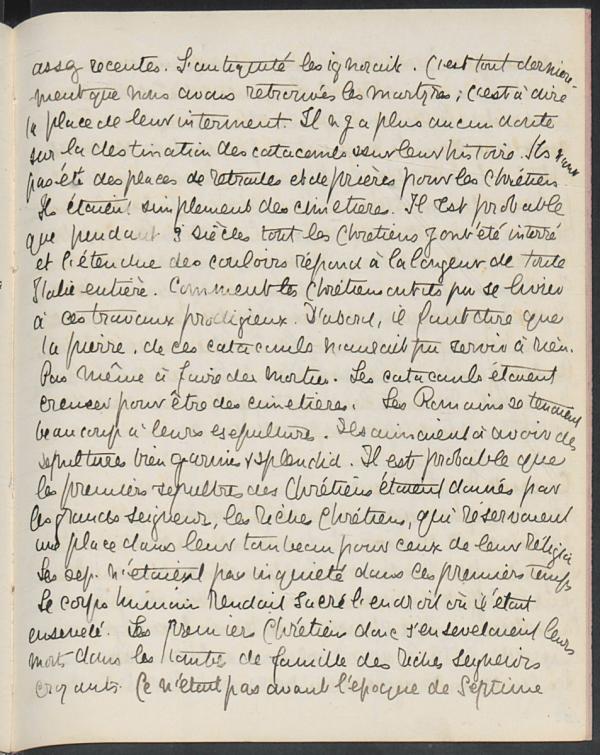 assez recentes. L'antiquité les ignorait. C'est tout derniere-
ment que nous avons retrouvés les martyrs ; c'est à dire
la place de leur interment. Il n'y a plus aucun doute
sur la destination des catacombs & sur leur histoire. Ils n'ont
pas été des places de retraites et de prières pour les Chrétiens.
Ils étaient simplement des cimetieres. Il est probable
que pendant 3 siècles tout les Chretiens y ont été interré
et l'étendue des couloirs répond à la longeur de toute
l'Italie entière. Comment les Chrétiens ont ils pu se livrer
à ces travaux prodigieux. D'abord, il faut dire que
la pierre de ces catacombs n'aurait pu servir à rien.
Pas même à faire des mortier. Les catacombs étaient
creuser pour être des cimetieres. Les Romains se tenaient
beaucoup à leurs sepulture. Ils aimaient à avoir des
sepultures bien garnies & splendid. Il est probable que
les premiers sepultres des Chrétiens étaient donnés par
les grands seigneur, les riches Chrétiens, qui reservaient
une place dans leur tombeau pour ceux de leur religion
Les sep. n'étaient pas inquieté dans ces premiers temps
Le corps humain rendait sacré l'endroit où il était
enseveli. Les premiers Chrétiens donc s'ensevelaient leurs
morts dans les tombs de famille des riches seigneurs
croyants. Ce n'était pas avant l'époque de Septime